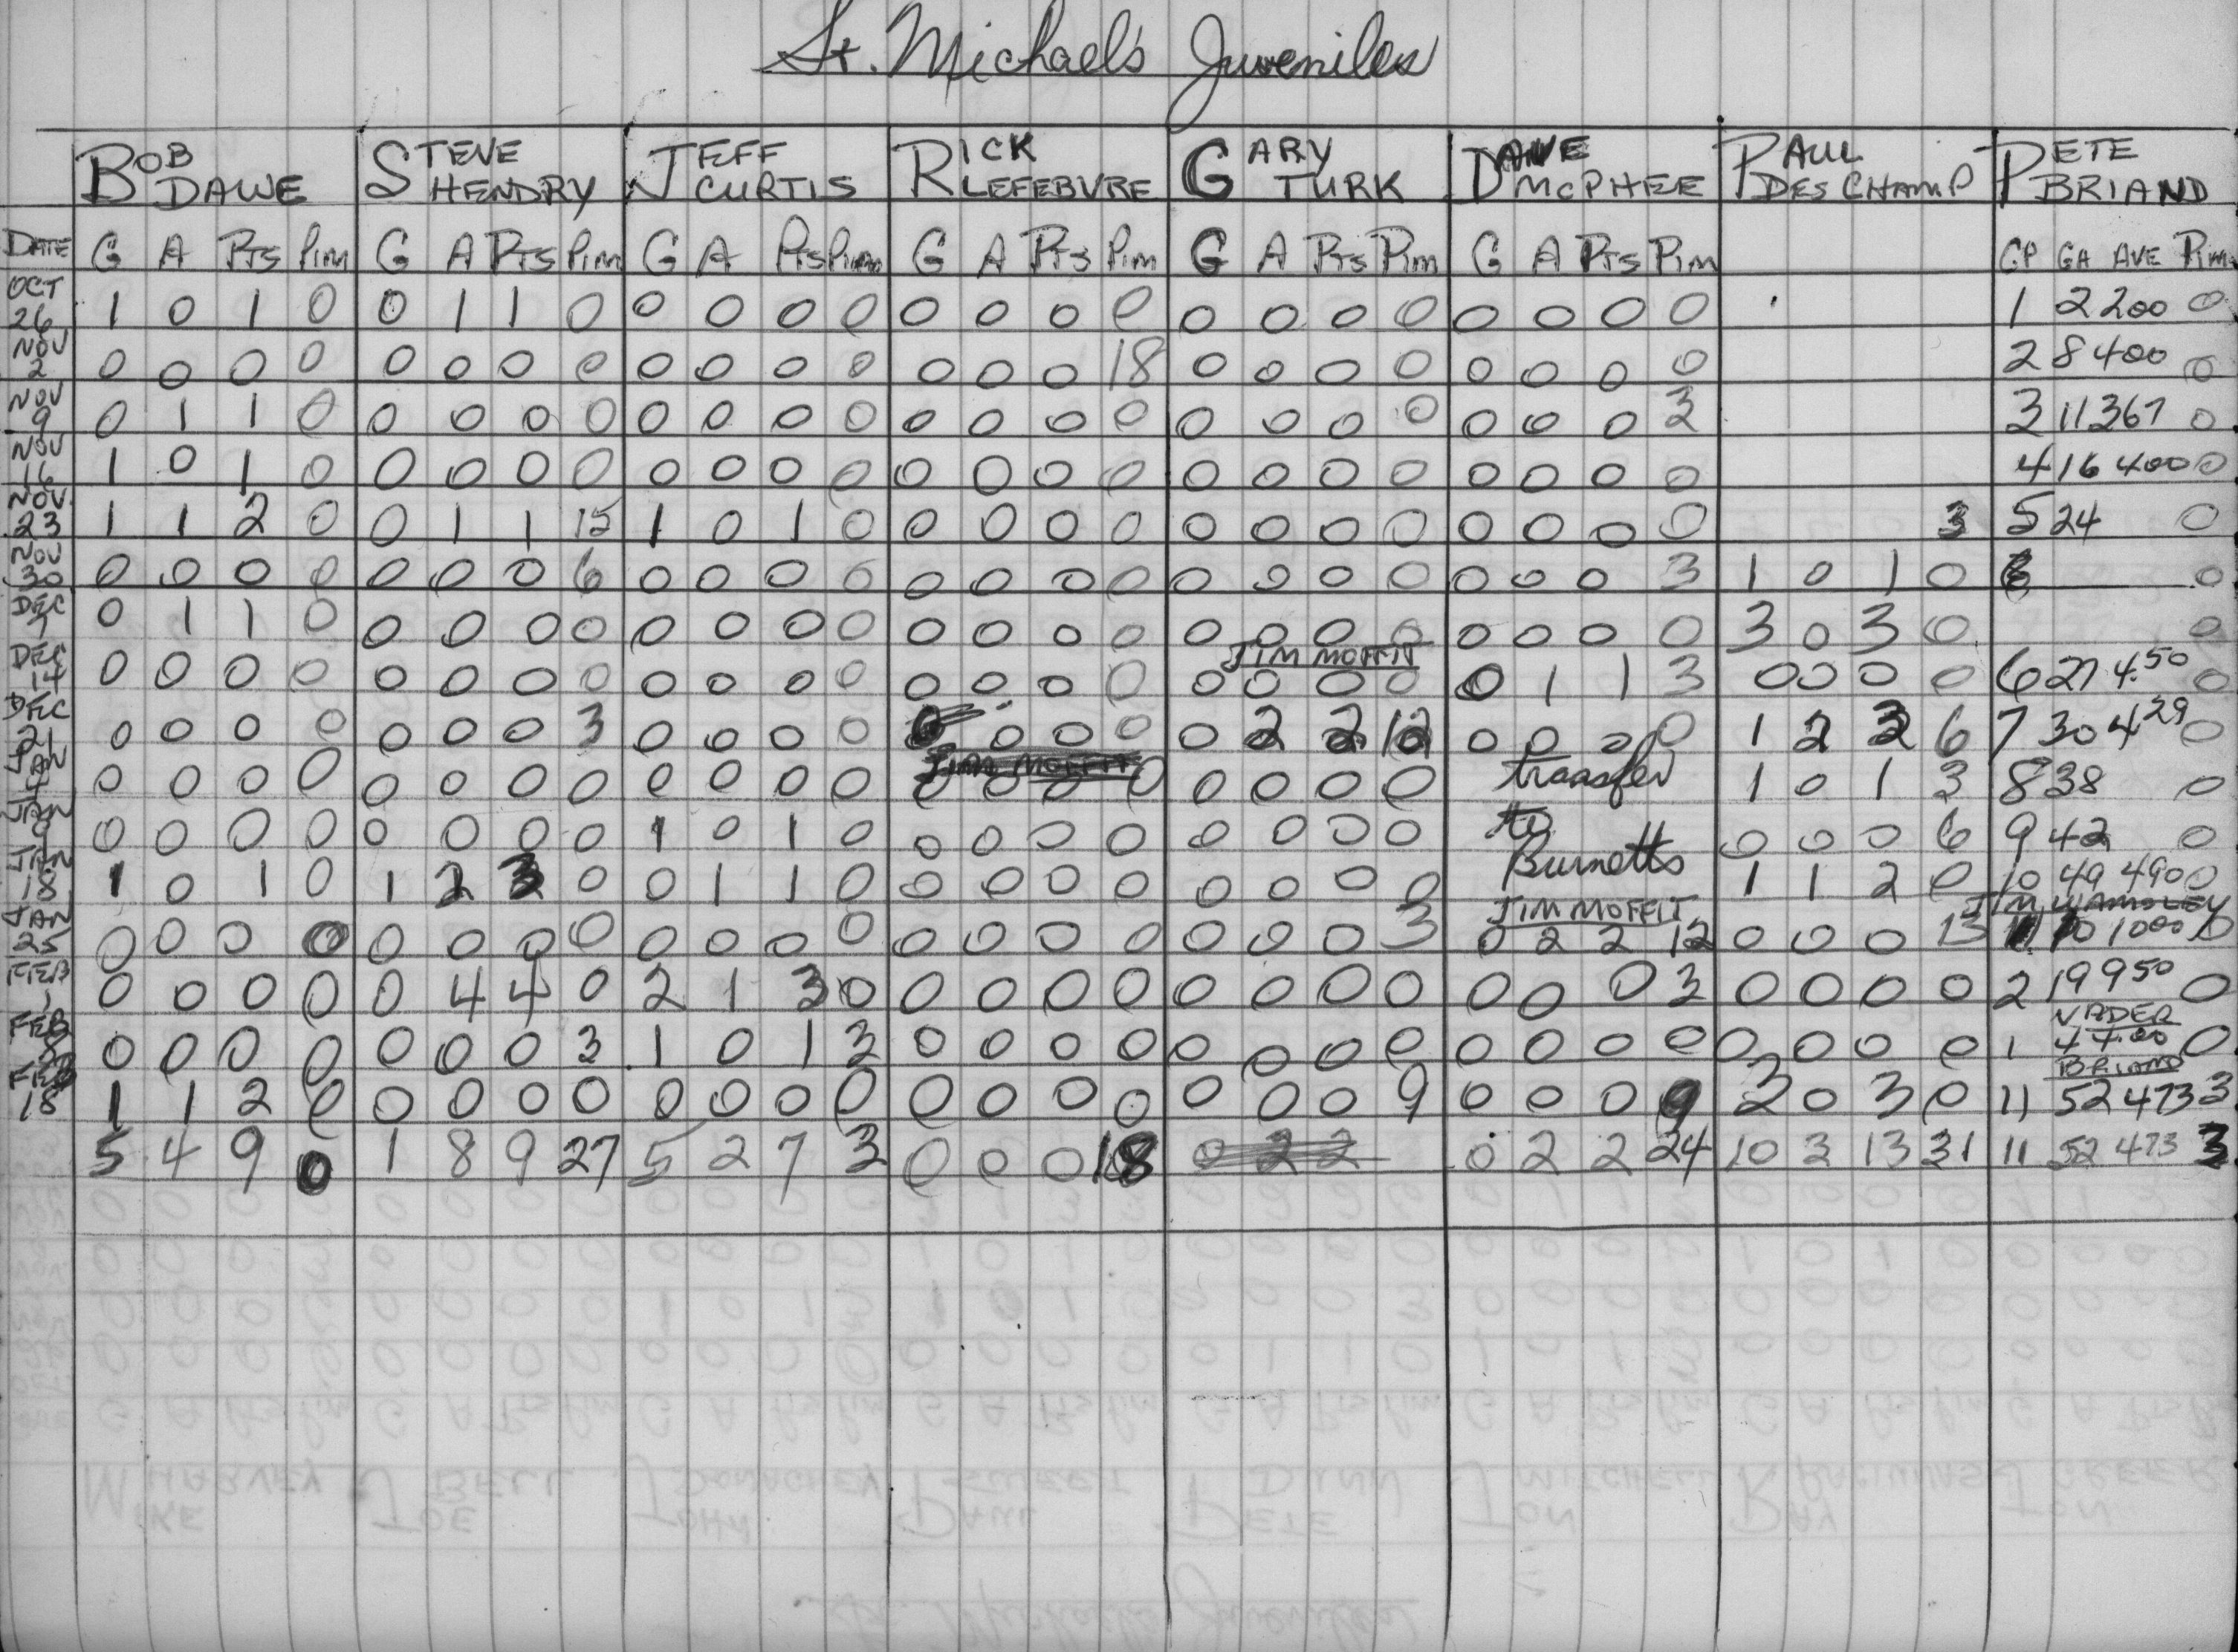 St. Michael's Juveniles
BOB DAWE STEVE HENDRY JEFF CURTIS RICK LEFEBVRE GARY TURK DAVE MCPHEE PAUL DESCHAMP PETE BRIAND
DATE G A PTS Pim G A PTS Pim G A PTS Pim G A PTS Pim G A PTS Pim G A PTS Pim GP GA AVE Pim
OCT 26 1 0 1 0 0 1 1 0 0 0 0 0 0 0 0 0 0 0 0 0 0 0 0 0 1 2 200 0
NOV 2 0 0 0 0 0 0 0 0 0 0 0 0 0 0 0 18 0 0 0 0 0 0 0 0 2 8 400 0
NOV 9 0 1 1 0 0 0 0 0 0 0 0 0 0 0 0 0 0 0 0 0 0 0 0 3 3 11 367 0
NOV 16 1 0 1 0 0 0 0 0 0 0 0 0 0 0 0 0 0 0 0 0 0 0 0 0 4 16 400 0
NOV. 23 1 1 2 0 0 1 1 15 1 0 1 0 0 0 0 0 0 0 0 0 0 0 0 0 3 5 24 0
NOV 30 0 0 0 0 0 0 0 6 0 0 0 0 0 0 0 0 0 0 0 0 0 0 0 3 1 0 1 0 0
DEC 7 0 1 1 0 0 0 0 0 0 0 0 0 0 0 0 0 0 0 0 0 0 0 0 0 3 0 3 0 0
JIM MOFFIT
DEC 14 0 0 0 0 0 0 0 0 0 0 0 0 0 0 0 0 0 0 0 0 0 1 1 3 0 0 0 0 6 27 4.50 0
DEC 21 0 0 0 0 0 0 0 3 0 0 0 0 0 0 0 0 0 2 2 12 0 0 0 0 1 2 3 6 7 30 4 29 0
JIM MOFFIT
JAN 4 0 0 0 0 0 0 0 0 0 0 0 0 0 0 0 0 0 0 0 0 transfer 1 0 1 3 8 38 0
JAN 9 0 0 0 0 0 0 0 0 1 0 1 0 0 0 0 0 0 0 0 0 to 0 0 0 6 9 42 0
JAN 18 1 0 1 0 1 2 3 0 0 1 1 0 0 0 0 0 0 0 0 0 Burnetts 1 1 2 0 10 49 490 0
JIM MOFFIT JIM WAMSLEY
JAN 25 0 0 0 0 0 0 0 0 0 0 0 0 0 0 0 0 0 0 0 3 0 2 2 12 0 0 0 13 1 10 1000 0
FEB 1 0 0 0 0 0 4 4 0 2 1 3 0 0 0 0 0 0 0 0 0 0 0 0 3 0 0 0 0 2 19 950 0
NADER
FEB 8 0 0 0 0 0 0 0 3 1 0 1 3 0 0 0 0 0 0 0 0 0 0 0 0 0 0 0 0 1 4 4.00 0
BRIAND
FEB 18 1 1 2 0 0 0 0 0 0 0 0 0 0 0 0 0 0 0 0 9 0 0 0 9 3 0 3 0 11 52 473 3
5 4 9 0 1 8 9 27 5 2 7 3 0 0 0 18 0 2 2 0 2 2 24 10 3 13 31 11 52 473 3